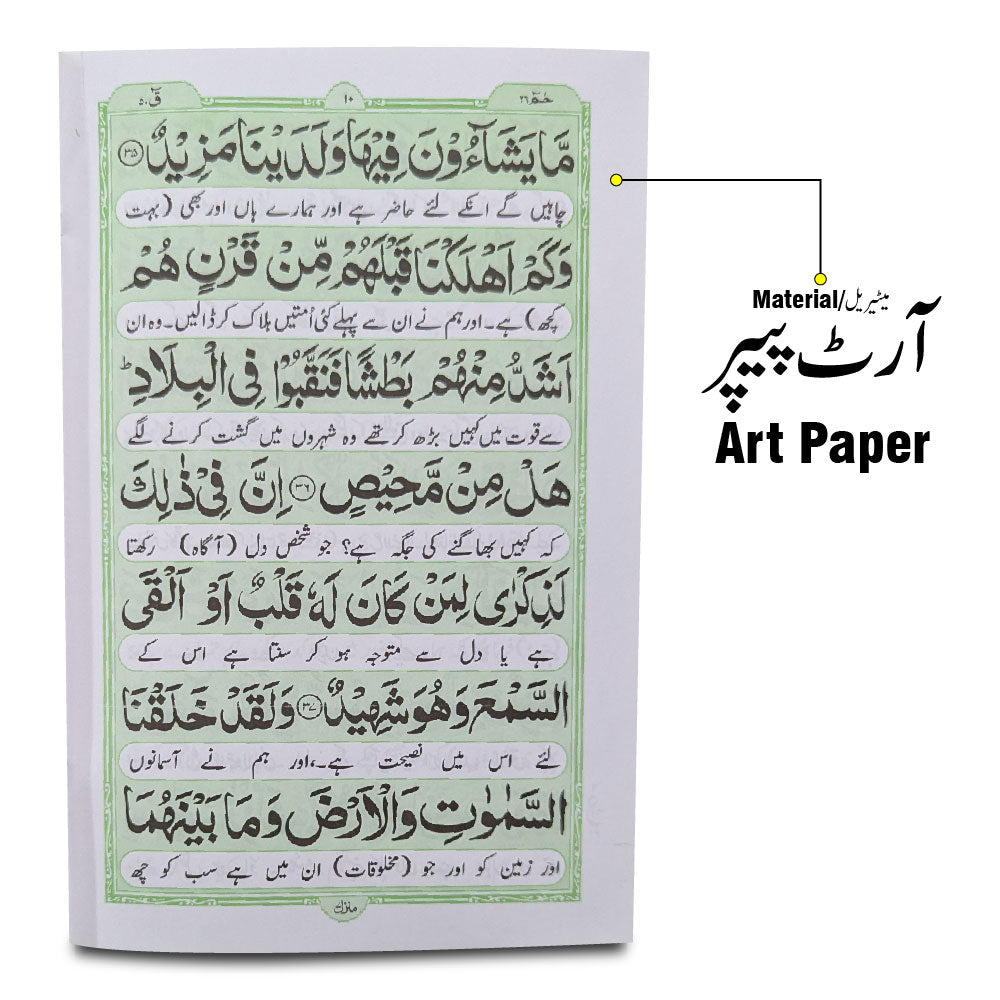 حٰمٓ ٢٦ ١٠ قٓ ٥٠
مَّا يَشَآءُوْنَ فِيْهَا وَلَدَيْنَا مَزِيْدٌ ۝٣٥
چاہیں گے انکے لئے حاضر ہے اور ہمارے ہاں اور بھی (بہت
وَكَمْ اَهْلَكْنَا قَبْلَهُمْ مِّنْ قَرْنٍ هُمْ
کچھ) ہے۔ اور ہم نے ان سے پہلے کئی اُمتیں ہلاک کر ڈالیں۔ وہ ان
اَشَدُّ مِنْهُمْ بَطْشًا فَنَقَّبُوْا فِى الْبِلَادِؕ
سے قوت میں کہیں بڑھ کر تھے وہ شہروں میں گشت کرنے لگے
هَلْ مِنْ مَّحِيْصٍ ۝٣٦ اِنَّ فِىْ ذٰلِكَ
کہ کہیں بھاگنے کی جگہ ہے؟ جو شخص دل (آگاہ) رکھتا
لَذِكْرٰى لِمَنْ كَانَ لَهٗ قَلْبٌ اَوْ اَلْقَى
ہے یا دل سے متوجہ ہو کر سنتا ہے اس کے
السَّمْعَ وَهُوَ شَهِيْدٌ ۝٣٧ وَلَقَدْ خَلَقْنَا
لئے اس میں نصیحت ہے۔،اور ہم نے آسمانوں
السَّمٰوٰتِ وَالْاَرْضَ وَمَا بَيْنَهُمَا
اور زمین کو اور جو (مخلوقات) ان میں ہے سب کو چھ
منزل ٧
Material/میٹیریل
آرٹ پیپر
Art Paper